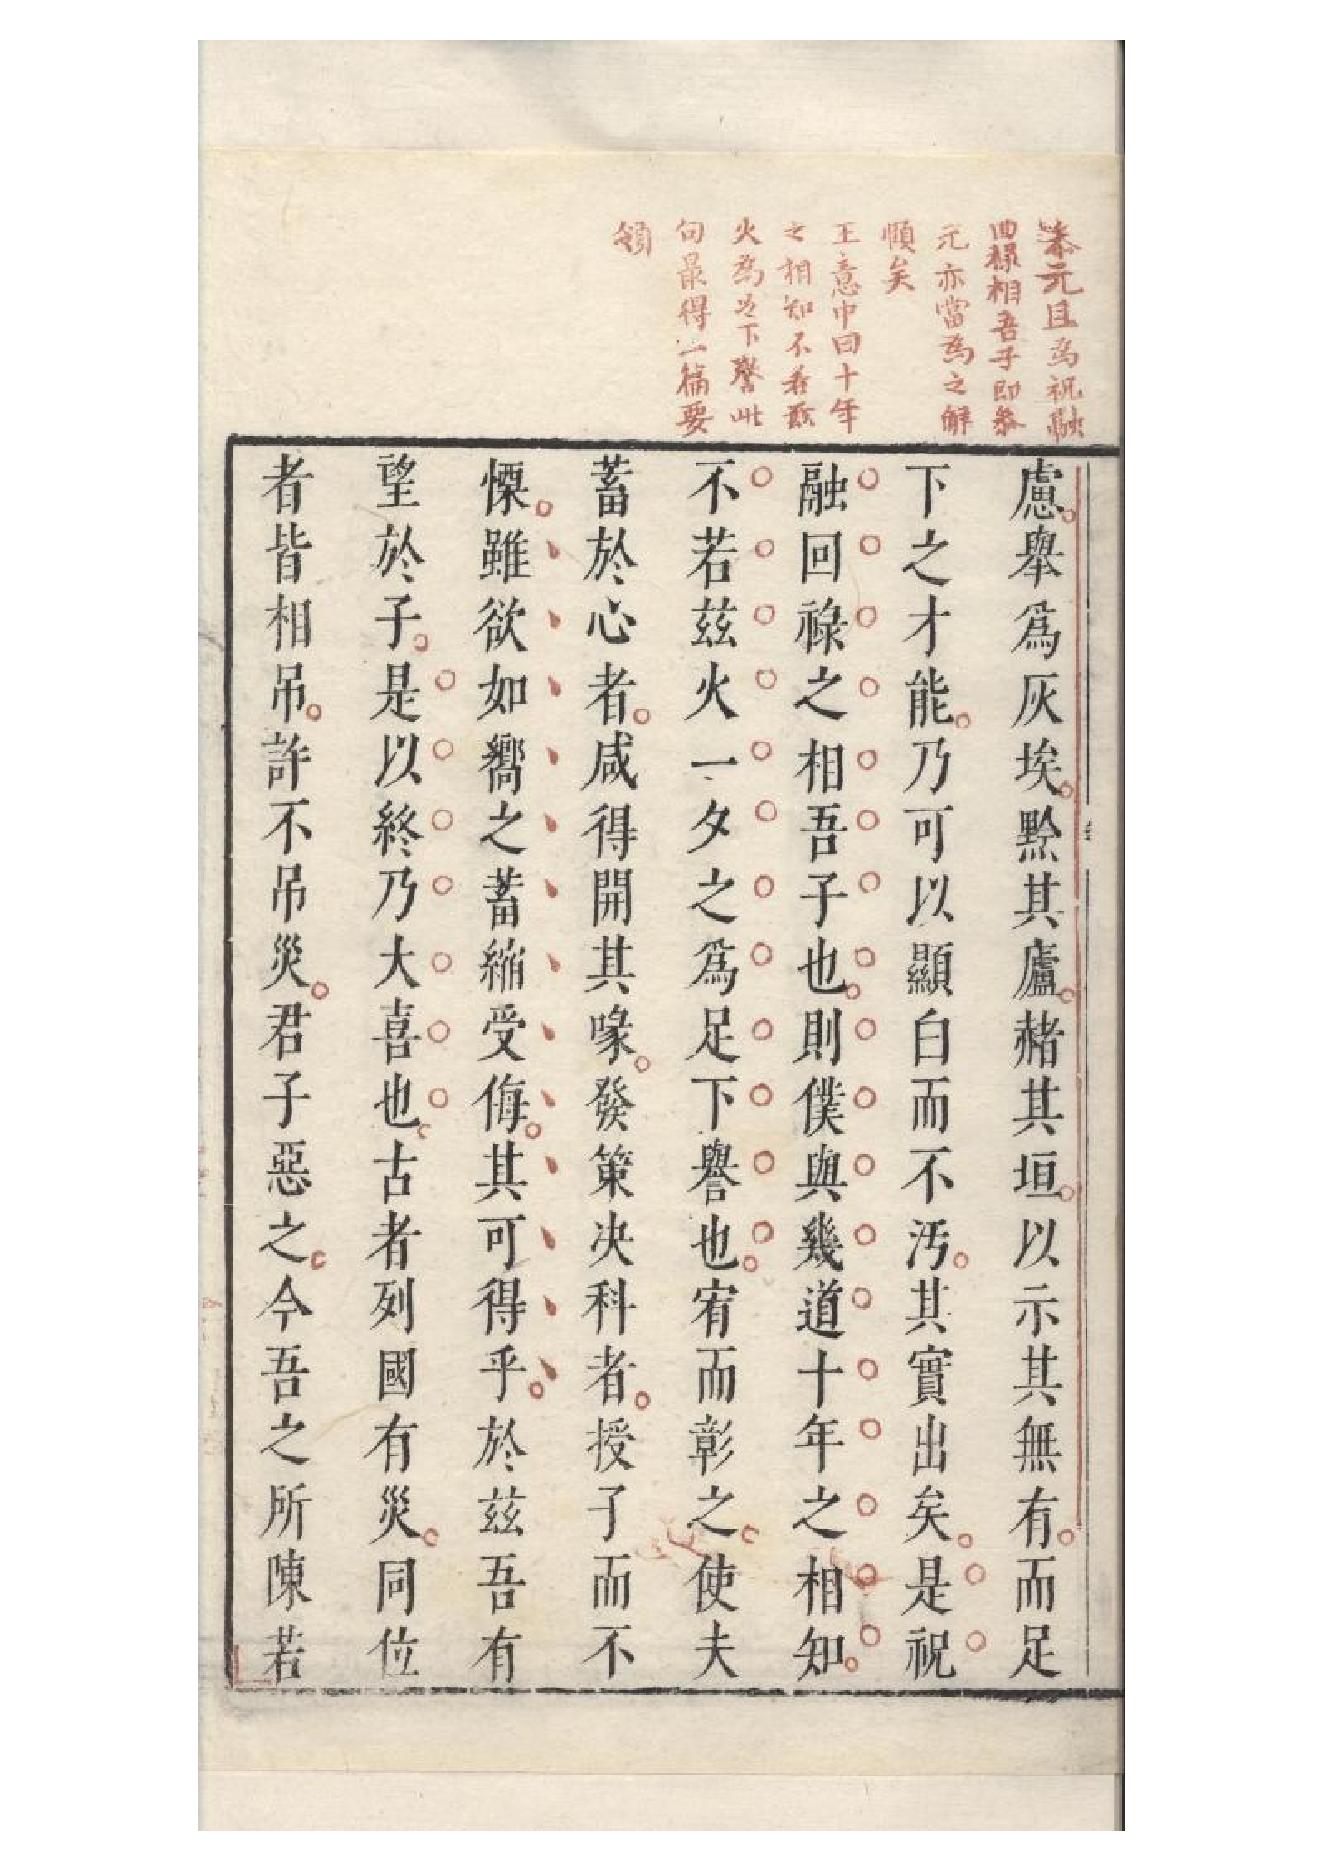 參元且為祝融
回祿相吾子即參
元亦當為之解
順矣
王意中曰十年
之相知不若茲
火為足下譽此
句最得一篇要
領
慮舉爲灰埃黔其廬赭其垣以示其無有而足
下之才能乃可以顯白而不汚其實出矣是祝
融回祿之相吾子也則僕與幾道十年之相知
不若茲火一夕之爲足下譽也宥而彰之使夫
蓄於心者咸得開其喙發策决科者授子而不
慄雖欲如嚮之蓄縮受侮其可得乎於茲吾有
望於子是以終乃大喜也古者列國有災同位
者皆相吊許不吊災君子惡之今吾之所陳若